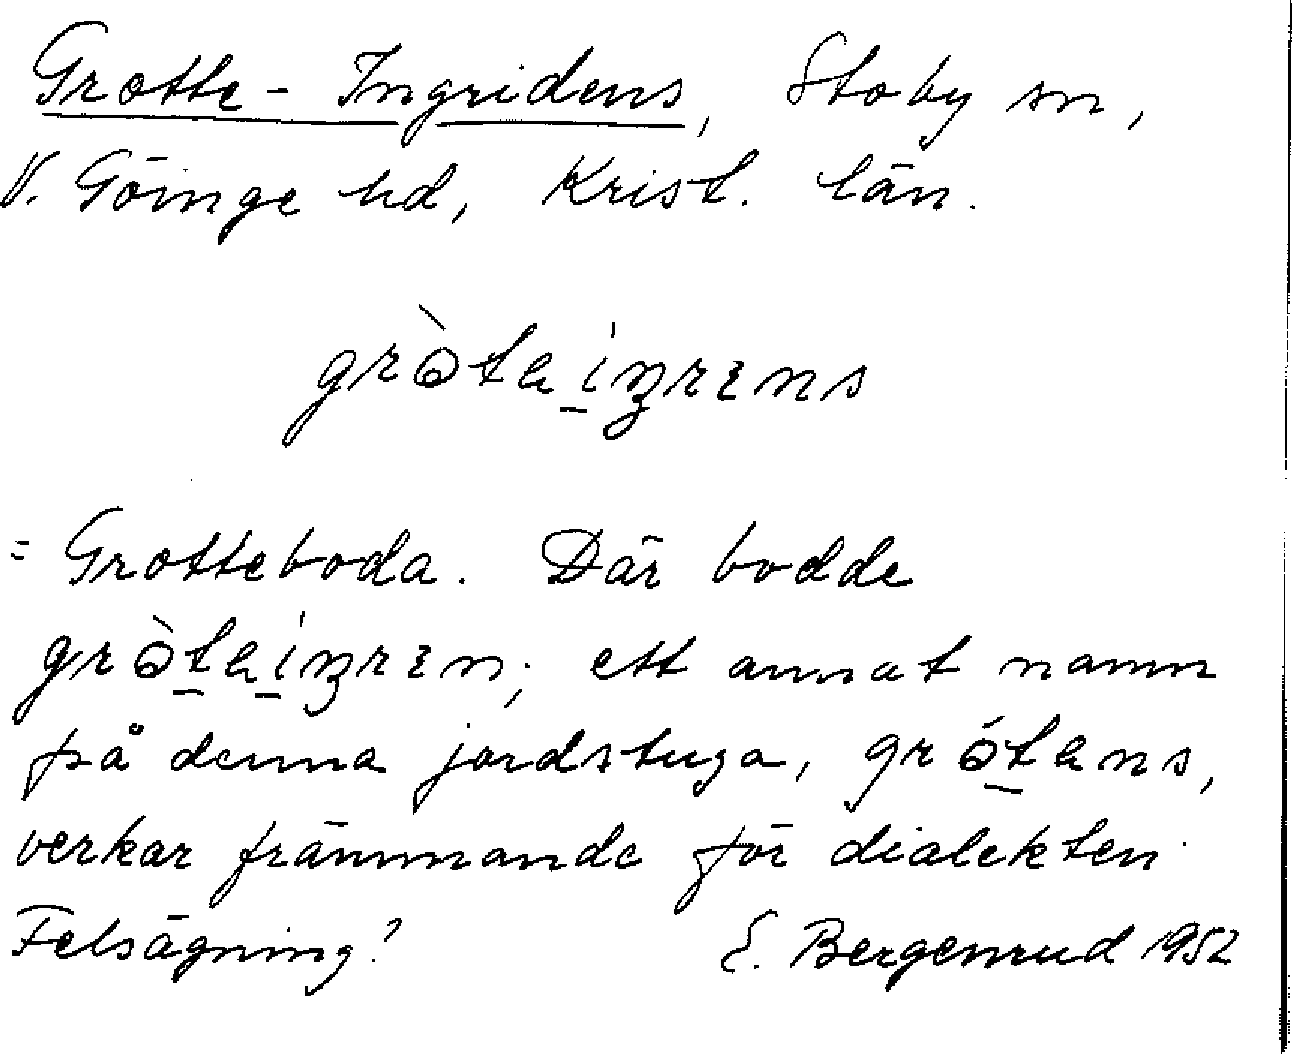 Grotte-Ingridens, Stoby sn,
V. Göinge hd, Krist. län.
grò̱ta i̱ŋrens
= Grotteboda. Där bodde
grò̱ta i̱ŋren; ett annat namn
på denna jordstuga, gró̱tans,
verkar främmande för dialekten.
Felsägning?
E. Bergenrud 1952